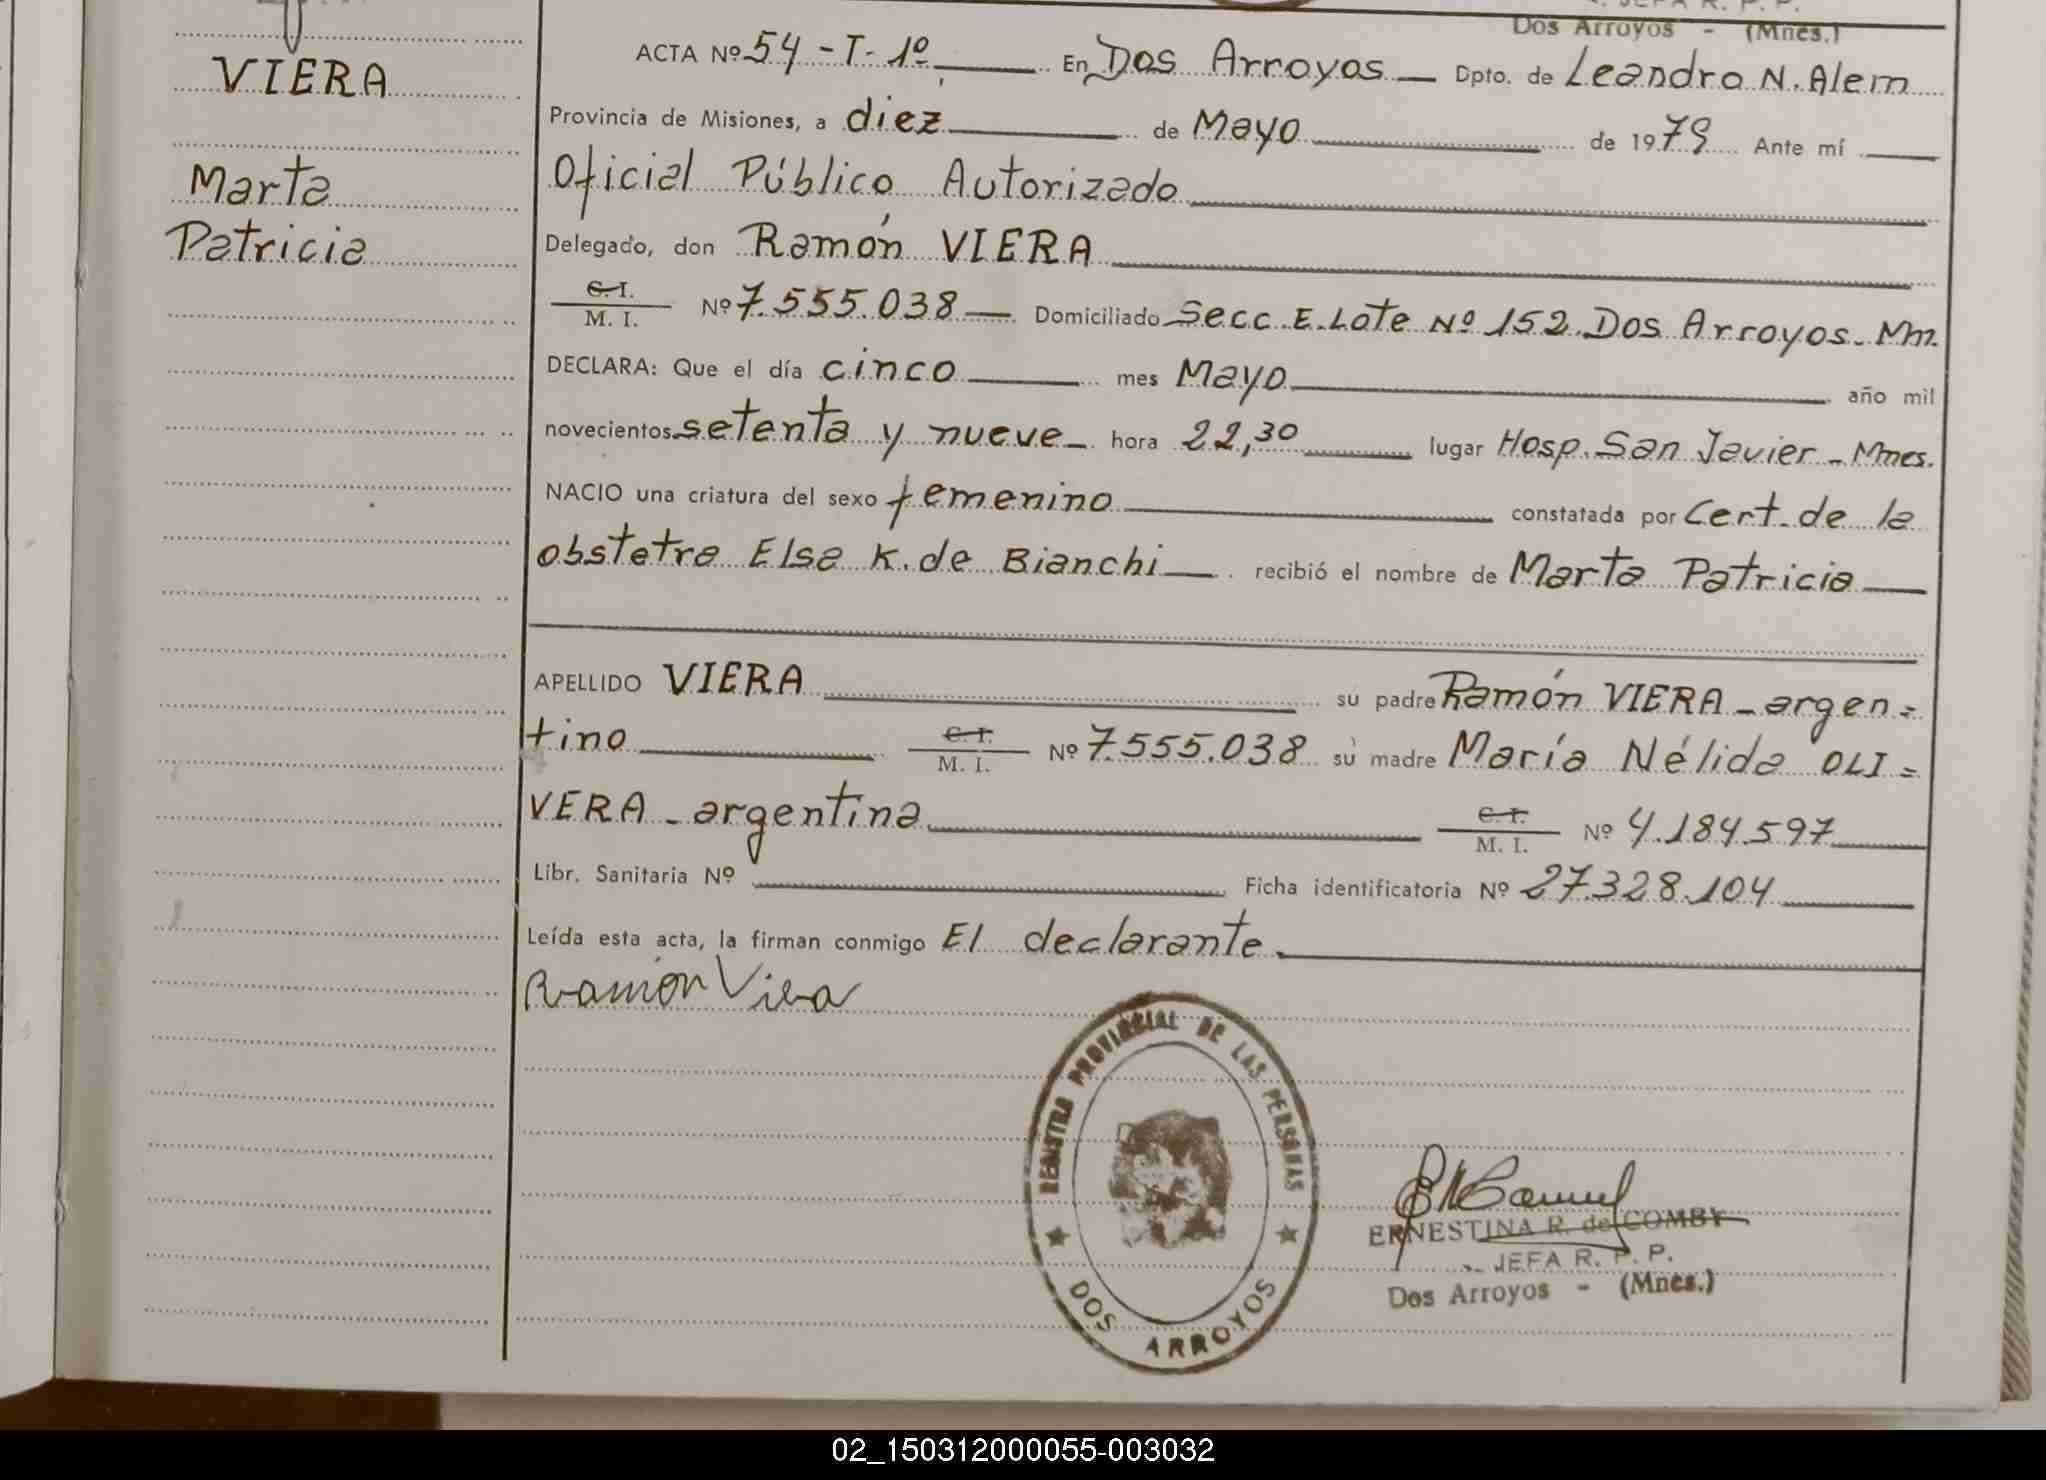 JEFA R. P. P.
Dos Arroyos - (Mnes.)
VIERA
Marta
Patricia
ACTA Nº 54 - T- 1º En Dos Arroyos Dpto. de Leandro N. Alem
Provincia de Misiones, a diez de Mayo de 1979 Ante mí
Oficial Público Autorizado
Delegado, don Ramón VIERA
C.I.
M. I. Nº 7.555.038 Domiciliado Secc. E. Lote Nº 152 Dos Arroyos - Mn.
DECLARA: Que el día cinco mes Mayo año mil
novecientos setenta y nueve hora 22,30 lugar Hosp. San Javier - Mnes.
NACIO una criatura del sexo femenino constatada por Cert. de la
obstetra Elsa K. de Bianchi recibió el nombre de Marta Patricia
APELLIDO VIERA su padre Ramón VIERA - argen=
tino C.I. M. I. Nº 7.555.038 su madre María Nélida OLI=
VERA - argentina C.I. M. I. Nº 4.184.597
Libr. Sanitaria Nº Ficha identificatoria Nº 27.328.104
Leída esta acta, la firman conmigo El declarante.
Ramón Viera
REGISTRO PROVINCIAL DE LAS PERSONAS
DOS ARROYOS
ERNESTINA R. de COMBY
JEFA R. P. P.
Dos Arroyos - (Mnes.)
02_150312000055-003032